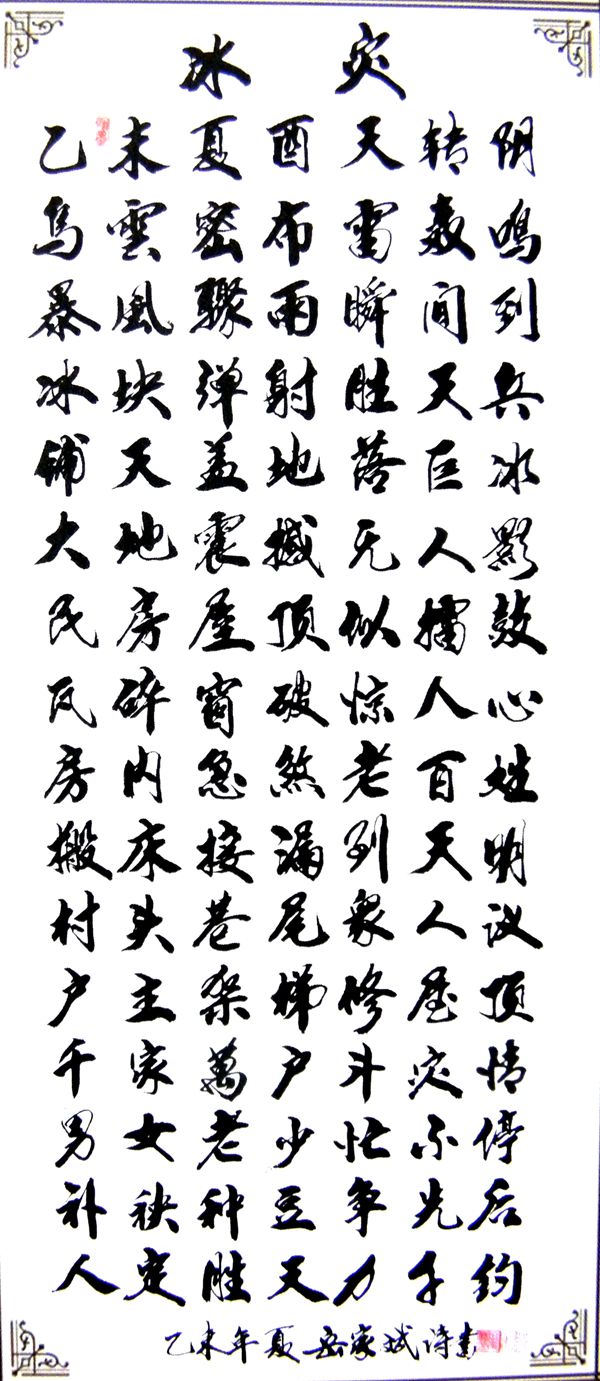 冰灾
乙未夏酉天转阴
烏雲密布雷轰鸣
暴風骤雨瞬间到
冰块弹射胜天兵
铺天盖地落巨冰
大地震撼无人影
民房屋顶似擂鼓
瓦碎窗破惊人心
房内急煞老百姓
搬床接漏到天明
村头巷尾眾人议
户主架梯修屋顶
千家萬户斗灾情
男女老少忙不停
补秧种豆争先后
人定胜天力千钧
乙未年夏 岳家斌诗書